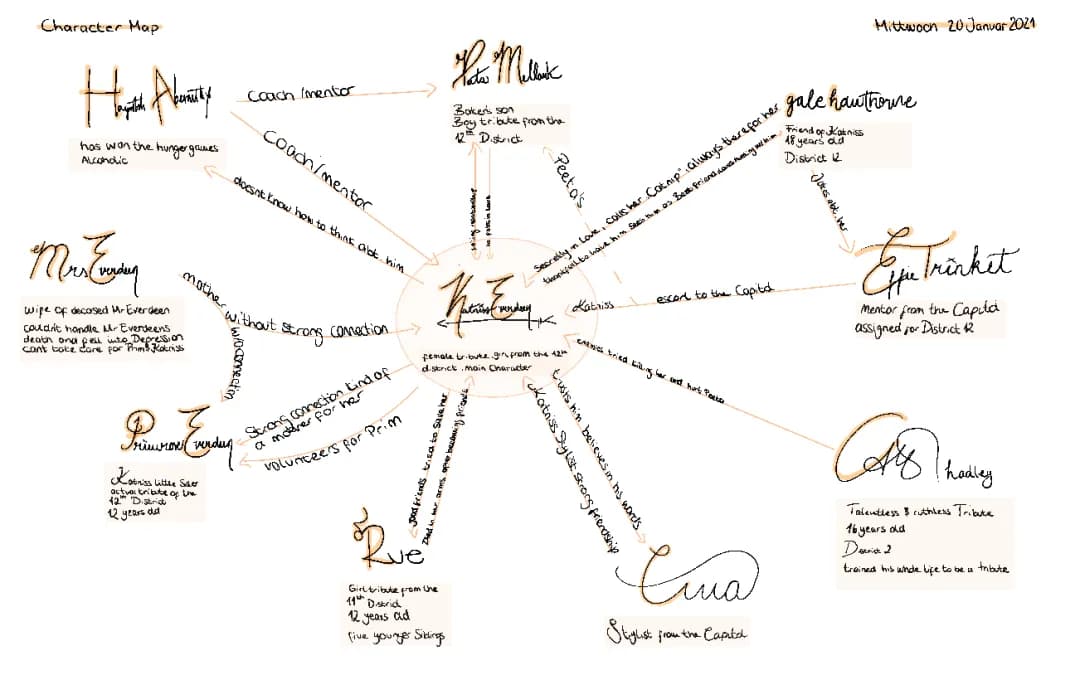 Character Map
Mittwoch 20 Januar 2021
Haymitch Abernathy
has won the hungergames
Alcoholic
Coach/mentor
Coach/mentor
doesnt know how to think abt. him
Peeta Mellark
Baker's son
Boy tribute from the
12th District
gale hawthorne
Friend of Katniss
18 years old
District 12
Secretly in Love, calls her "Catnip", always there for her
Peeta's
Katniss
escort to the Capitol
Effie Trinket
Mentor from the Capitol
assigned for District 12
Mrs Everdeen
wife of decased Mr Everdeen
couldn't handle Mr Everdeens
death and fell into Depression
cant take care for Prim & Katniss
mother without strong connection
Katniss Everdeen
female tribute, girl from the 12th
district, main Character
enemies tried killing her and hurt Peeta
Primrose Everdeen
Katniss little Sister
actual tribute of the
12th District
12 years old
Strong connection kind of
a mother for her
volunteers for Prim
good friends, tried to save her
Died in her arms after becoming friends
Rue
Girl tribute from the
11th District
12 years old
five younger Siblings
trusts him, believes in his words
Katniss Stylist, strong friendship
Cinna
Stylist from the Capitol
Talentless & ruthless Tribute
16 years old
District 2
trained his whole life to be a tribute